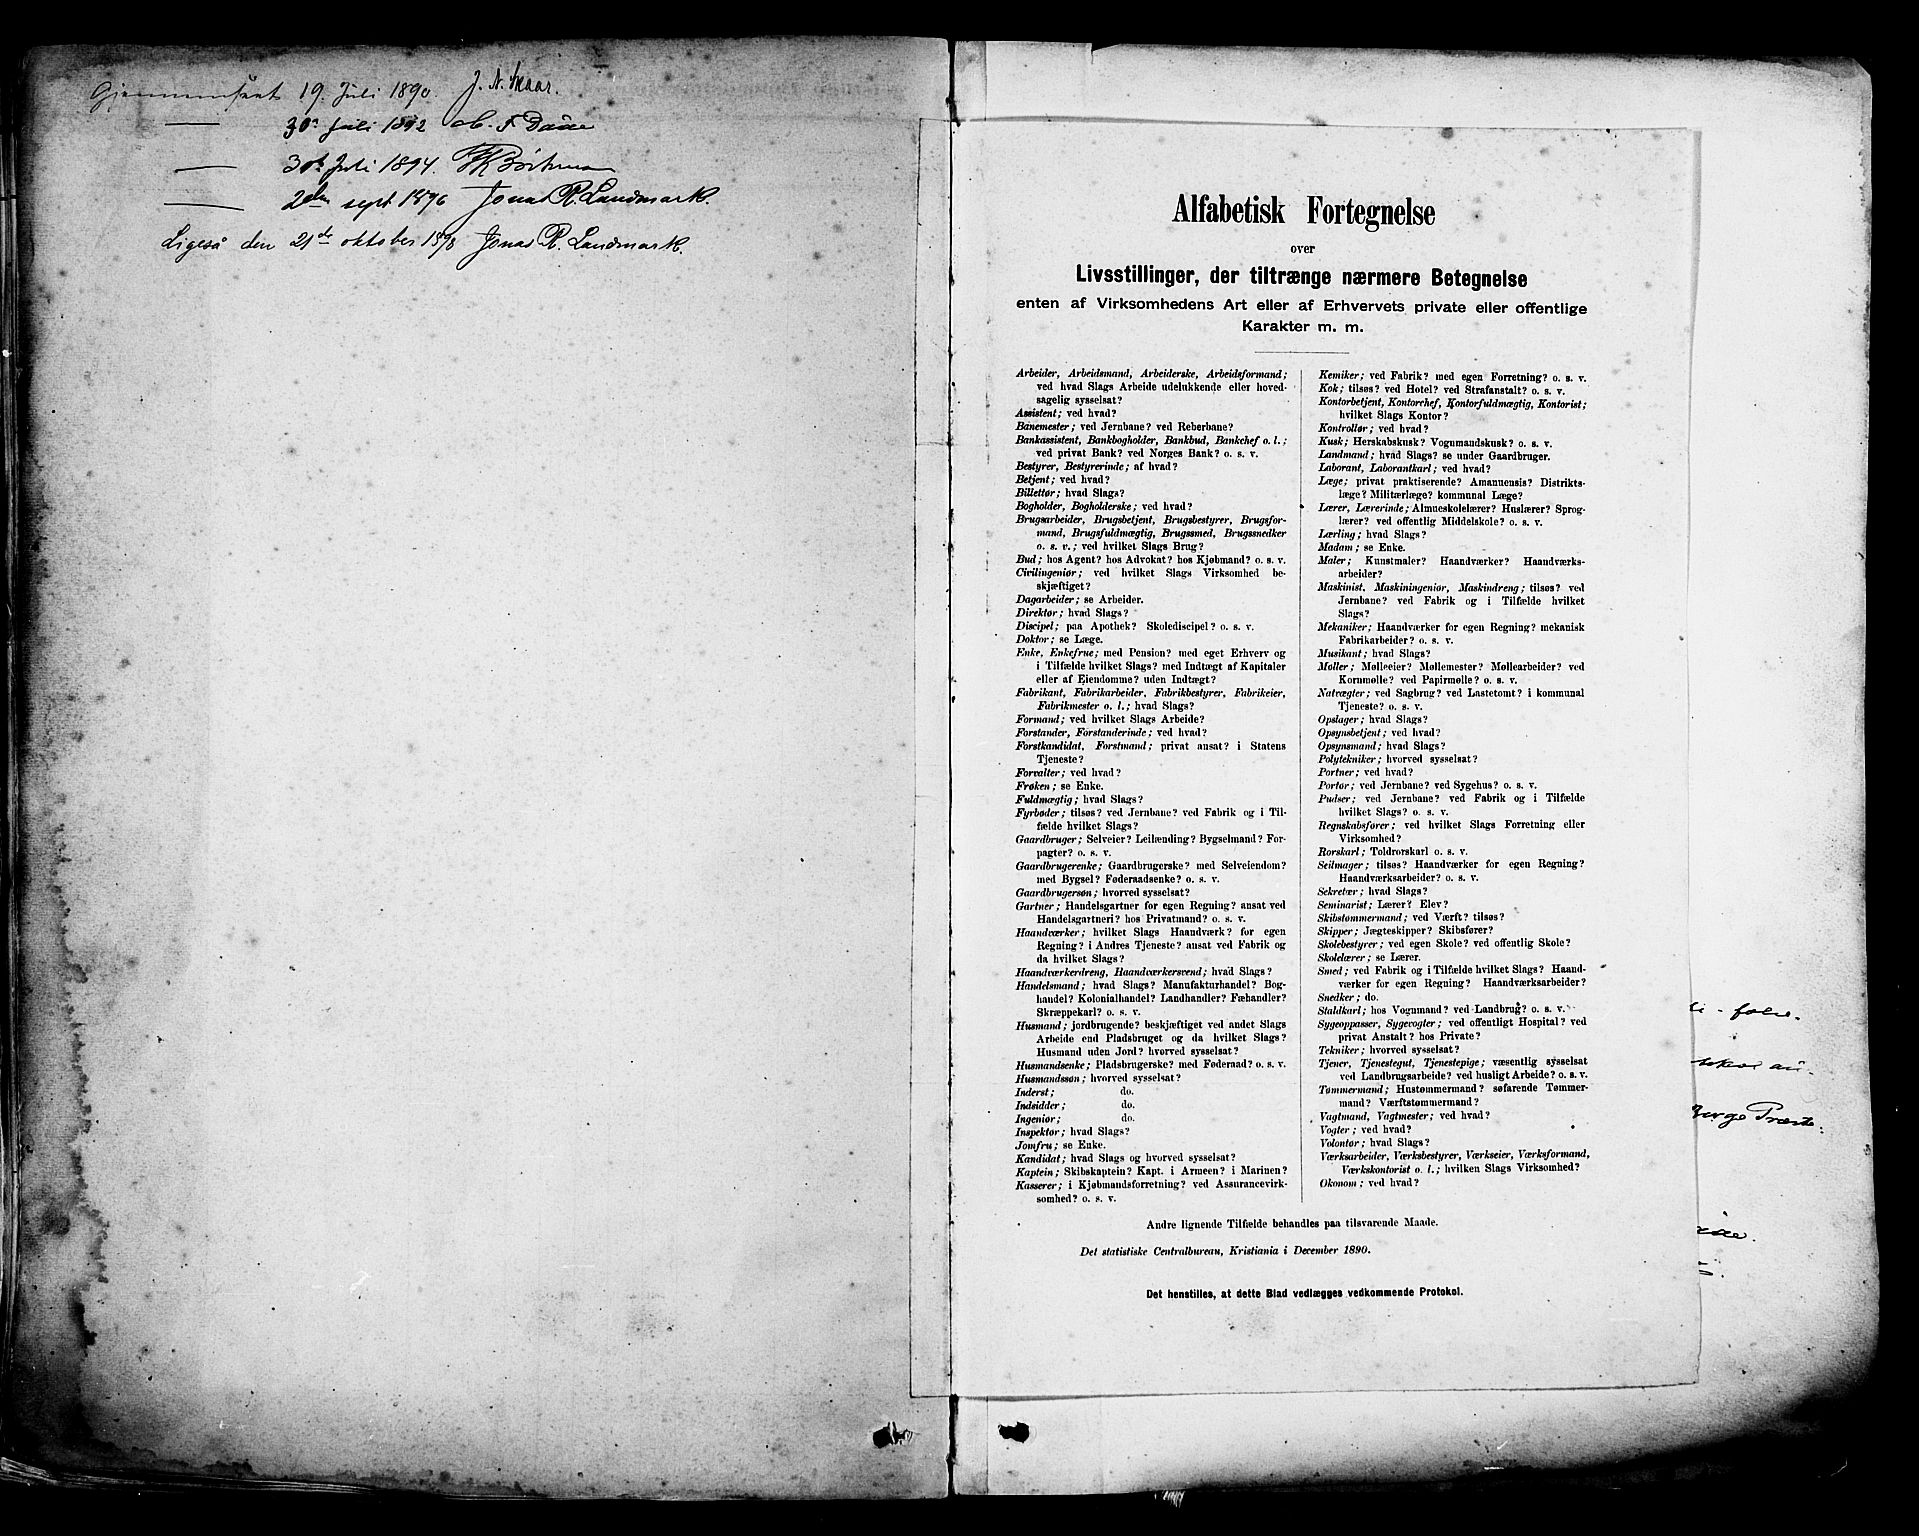 Gjennemseet 19. Juli 1890. J. N. Skaar.
30te Juli 1892
30te Juli 1894.
2den sept. 1896 Jonas R. Landmark.
Ligeså den 21de oktober 1898 Jonas R. Landmark.
Alfabetisk Fortegnelse
over
Livsstillinger, der tiltrænge nærmere Betegnelse
enten af Virksomhedens Art eller af Erhvervets private eller offentlige
Karakter m. m.
Arbeider, Arbeidsmand, Arbeiderske, Arbeidsformand;
ved hvad Slags Arbeide udelukkende eller hoved-
sagelig sysselsat?
Assistent; ved hvad?
Banemester; ved Jernbane? ved Reberbane?
Bankassistent, Bankbogholder, Bankbud, Bankchef o. l.;
ved privat Bank? ved Norges Bank? o. s. v.
Bestyrer, Bestyrerinde; af hvad?
Betjent; ved hvad?
Billettør; hvad Slags?
Bogholder, Bogholderske; ved hvad?
Brugsarbeider, Brugsbetjent, Brugsbestyrer, Brugsfor-
mand, Brugsfuldmægtig, Brugssmed, Brugssnedker
o. s. v.; ved hvilket Slags Brug?
Bud; hos Agent? hos Advokat? hos Kjøbmand? o. s. v.
Civilingeniør; ved hvilket Slags Virksomhed be-
skjæftiget?
Dagarbeider; se Arbeider.
Direktør; hvad Slags?
Discipel; paa Apothek? Skolediscipel? o. s. v.
Doktor; se Læge.
Enke, Enkefrue; med Pension? med eget Erhverv og
i Tilfælde hvilket Slags? med Indtægt af Kapitaler
eller af Eiendomme? uden Indtægt?
Fabrikant, Fabrikarbeider, Fabrikbestyrer, Fabrikeier,
Fabrikmester o. l.; hvad Slags?
Formand; ved hvilket Slags Arbeide?
Forstander, Forstanderinde; ved hvad?
Forstkandidat, Forstmand; privat ansat? i Statens
Tjeneste?
Forvalter; ved hvad?
Frøken; se Enke.
Fuldmægtig; hvad Slags?
Fyrbøder; tilsøs? ved Jernbane? ved Fabrik og i Til-
fælde hvilket Slags?
Gaardbruger; Selveier? Leilænding? Bygselmand? For-
pagter? o. s. v.
Gaardbrugerenke; Gaardbrugerske? med Selveiendom?
med Bygsel? Føderaadsenke? o. s. v.
Gaardbrugersøn; hvorved sysselsat?
Gartner; Handelsgartner for egen Regning? ansat ved
Handelsgartneri? hos Privatmand? o. s. v.
Haandværker; hvilket Slags Haandværk? for egen
Regning? i Andres Tjeneste? ansat ved Fabrik og
da hvilket Slags?
Haandværkerdreng, Haandværkersvend; hvad Slags?
Handelsmand; hvad Slags? Manufakturhandel? Bog-
handel? Kolonialhandel? Landhandler? Fæhandler?
Skræppekarl? o. s. v.
Husmand; jordbrugende? beskjæftiget ved andet Slags
Arbeide end Pladsbruget og da hvilket Slags?
Husmand uden Jord? hvorved sysselsat?
Husmandsenke; Pladsbrugerske? med Føderaad? o. s. v.
Husmandssøn; hvorved sysselsat?
Inderst; do.
Indsidder; do.
Ingeniør; do.
Inspektør; hvad Slags?
Jomfru; se Enke.
Kandidat; hvad Slags og hvorved sysselsat?
Kaptein; Skibskaptein? Kapt. i Armeen? i Marinen?
Kasserer; i Kjøbmandsforretning? ved Assurancevirk-
somhed? o. s. v.
Kemiker; ved Fabrik? med egen Forretning? o. s. v.
Kok; tilsøs? ved Hotel? ved Strafanstalt? o. s. v.
Kontorbetjent, Kontorchef, Kontorfuldmægtig, Kontorist;
hvilket Slags Kontor?
Kontrollør; ved hvad?
Kusk; Herskabskusk? Vognmandskusk? o. s. v.
Landmand; hvad Slags? se under Gaardbruger.
Laborant, Laborantkarl; ved hvad?
Læge; privat praktiserende? Amanuensis? Distrikts-
læge? Militærlæge? kommunal Læge?
Lærer, Lærerinde; Almueskolelærer? Huslærer? Sprog-
lærer? ved offentlig Middelskole? o. s. v.
Lærling; hvad Slags?
Madam; se Enke.
Maler; Kunstmaler? Haandværker? Haandværks-
arbeider?
Maskinist, Maskiningeniør, Maskindreng; tilsøs? ved
Jernbane? ved Fabrik og i Tilfælde hvilket
Slags?
Mekaniker; Haandværker for egen Regning? mekanisk
Fabrikarbeider? o. s. v.
Musikant; hvad Slags?
Møller; Mølleeier? Møllemester? Møllearbeider? ved
Kornmølle? ved Papirmølle? o. s. v.
Natvægter; ved Sagbrug? ved Lastetomt? i kommunal
Tjeneste? o. s. v.
Opslager; hvad Slags?
Opsynsbetjent; ved hvad?
Opsynsmand; hvad Slags?
Polytekniker; hvorved sysselsat?
Portner; ved hvad?
Portør; ved Jernbane? ved Sygehus? o. s. v.
Pudser; ved Jernbane? ved Fabrik og i Tilfælde
hvilket Slags? o. s. v.
Regnskabsfører; ved hvilket Slags Forretning eller
Virksomhed?
Rorskarl; Toldrorskarl o. s. v.
Seilmager; tilsøs? Haandværker for egen Regning?
Haandværksarbeider? o. s. v.
Sekretær; hvad Slags?
Seminarist; Lærer? Elev?
Skibstømmermand; ved Værft? tilsøs?
Skipper; Jægteskipper? Skibsfører?
Skolebestyrer; ved egen Skole? ved offentlig Skole?
Skolelærer; se Lærer.
Smed; ved Fabrik og i Tilfælde hvilket Slags? Haand-
værker for egen Regning? Haandværksarbeider?
Snedker; do.
Staldkarl; hos Vognmand? ved Landbrug? o. s. v.
Sygeoppasser, Sygevogter; ved offentligt Hospital? ved
privat Anstalt? hos Private?
Tekniker; hvorved sysselsat?
Tjener, Tjenestegut, Tjenestepige; væsentlig sysselsat
ved Landbrugsarbeide? ved husligt Arbeide? o. s. v.
Tømmermand; Hustømmermand? søfarende Tømmer-
mand? Værftstømmermand?
Vagtmand, Vagtmester; ved hvad?
Vogter; ved hvad?
Volontør; hvad Slags?
Værksarbeider, Værksbestyrer, Værkseier, Værksformand,
Værkskontorist o. l.; hvilken Slags Virksomhed?
Økonom; ved hvad?
Andre lignende Tilfælde behandles paa tilsvarende Maade.
Det statistiske Centralbureau, Kristiania i December 1890.
Det henstilles, at dette Blad vedlægges vedkommende Protokol.